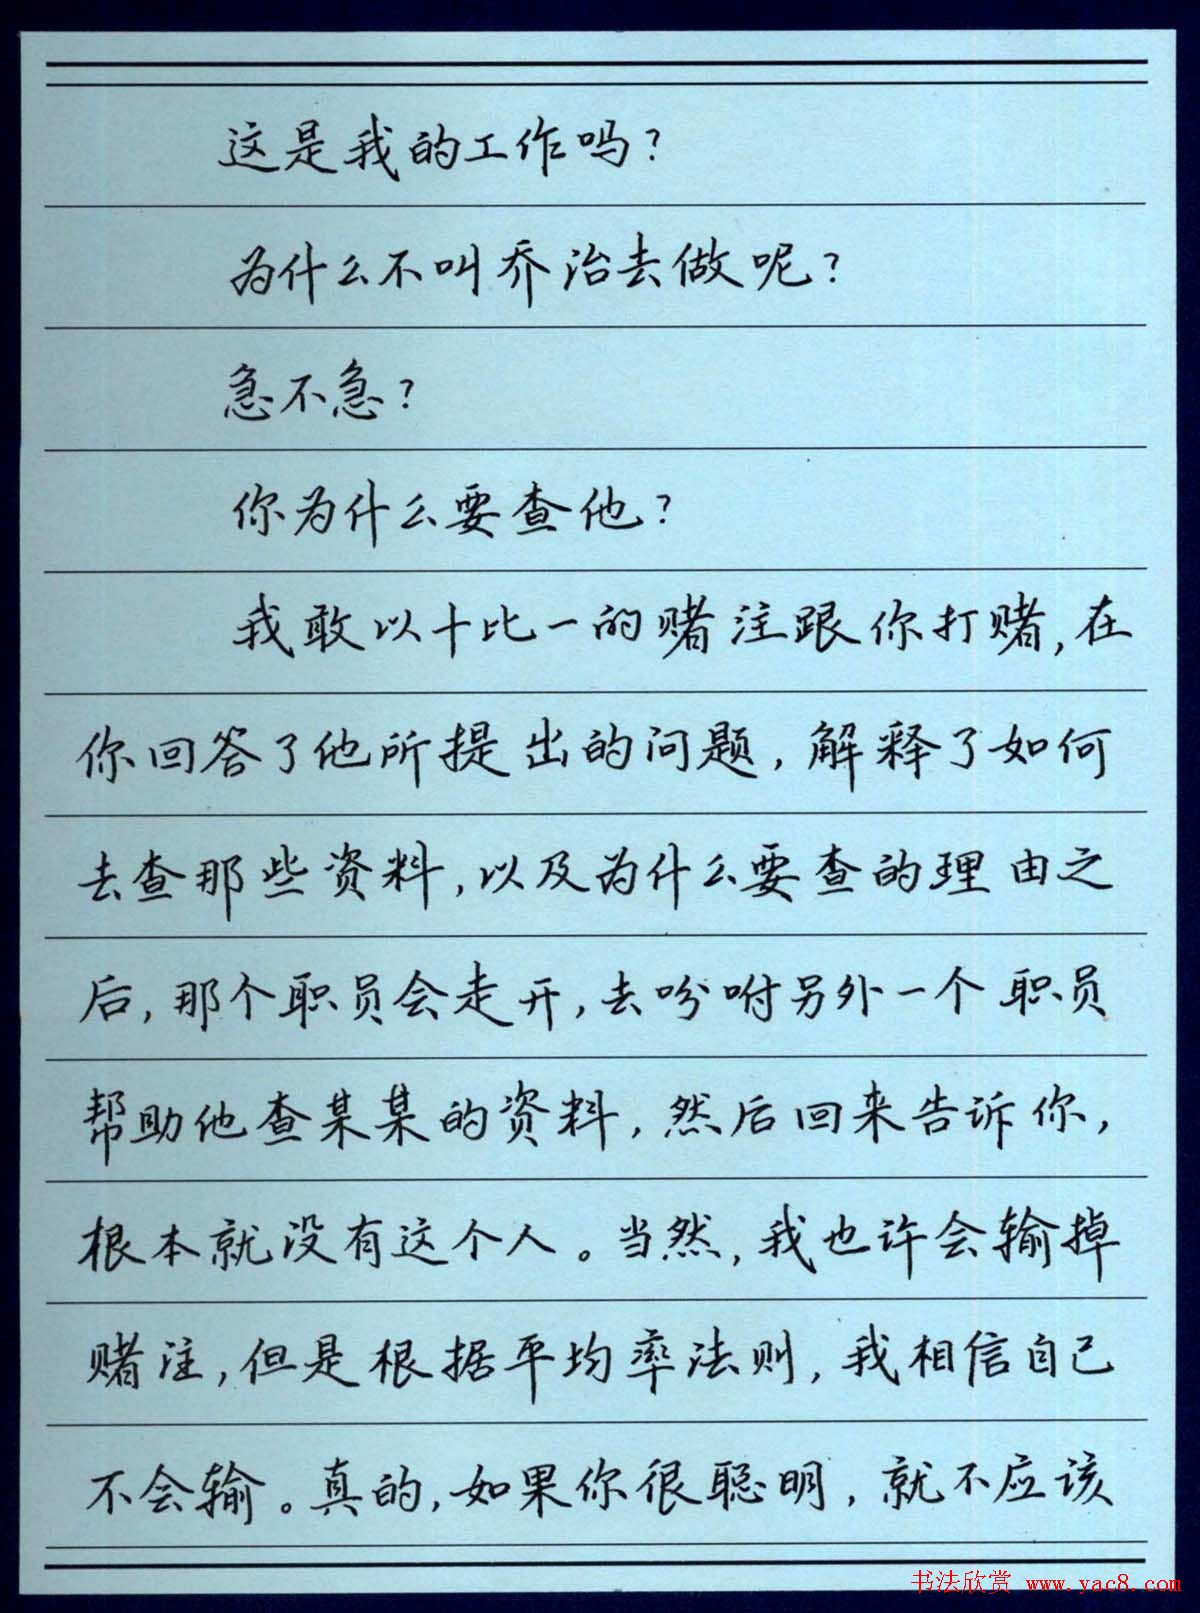 这是我的工作吗？
为什么不叫乔治去做呢？
急不急？
你为什么要查他？
我敢以十比一的赌注跟你打赌，在
你回答了他所提出的问题，解释了如何
去查那些资料，以及为什么要查的理由之
后，那个职员会走开，去吩咐另外一个职员
帮助他查某某的资料，然后回来告诉你，
根本就没有这个人。当然，我也许会输掉
赌注，但是根据平均率法则，我相信自己
不会输。真的，如果你很聪明，就不应该
书法欣赏 www.yac8.com